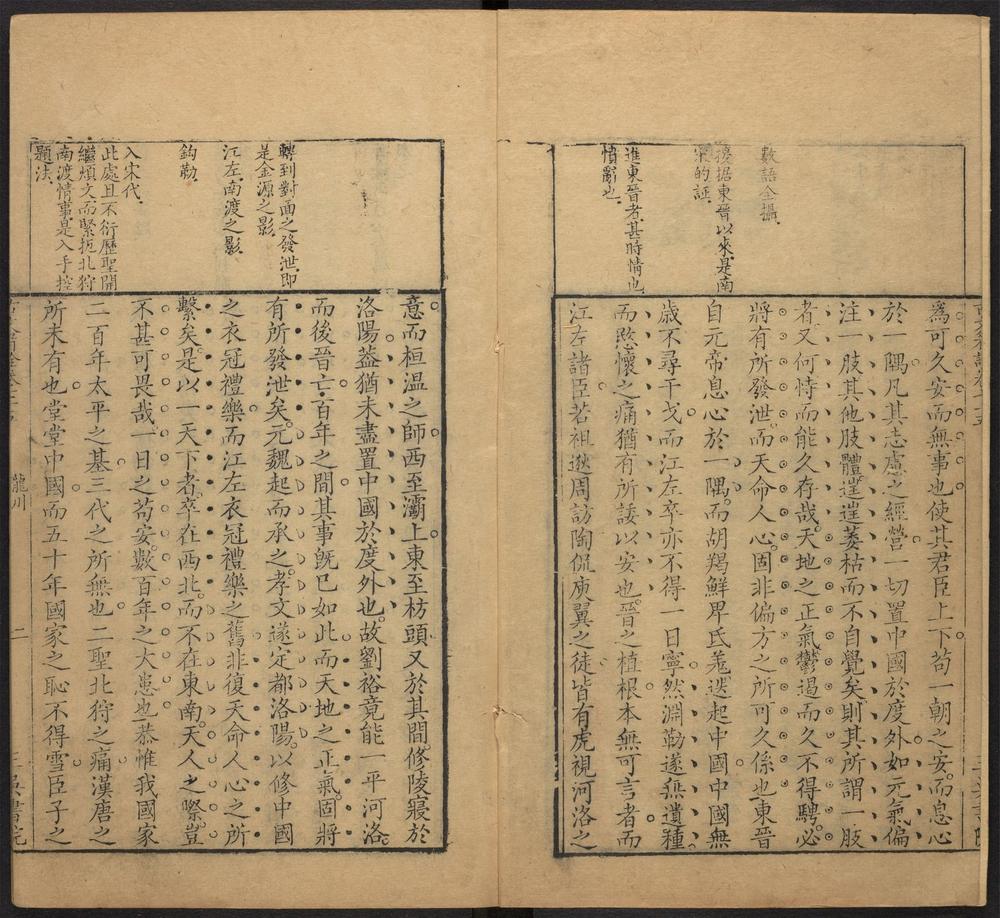 數語全攝
援据東晉以來是南
宋的証
進東晉者甚時情也
憤辭也
為可久安而無事也使其君臣上下苟一朝之安而息心
於一隅凡其志慮之經營一切置中國於度外如元氣偏
注一肢其他肢體𨓏𨓏萎枯而不自覺矣則其所謂一肢
者又何恃而能久存哉天地之正氣鬱遏而久不得騁必
將有所發泄而天命人心固非偏方之所可久係也東晉
自元帝息心於一隅而胡羯鮮卑氐羗迭起中國中國無
歲不尋干戈而江左卒亦不得一日寧然淵勒遂無遺種
而愍懷之痛猶有所諉以安也晉之植根本無可言者而
江左諸臣若祖逖周訪陶侃庾翼之徒皆有虎視河洛之
轉到對面之發泄即
是金源之影
江左南渡之影
鈎勒
入宋代
此處且不衍歷聖開
繼煩文而緊扼北狩
南渡情事是入手控
題法
意而桓温之師西至灞上東至枋頭又於其間修陵寢於
洛陽葢猶未盡置中國於度外也故劉裕竟能一平河洛
而後晉亡百年之間其事旣已如此而天地之正氣固將
有所發泄矣元魏起而承之孝文遂定都洛陽以修中國
之衣冠禮樂而江左衣冠禮樂之舊非復天命人心之所
繫矣是以一天下者卒在西北而不在東南天人之際豈
不甚可畏哉一日之苟安數百年之大患也恭惟我國家
二百年太平之基三代之所無也二聖北狩之痛漢唐之
所未有也堂堂中國而五十年國家之恥不得雪臣子之
龍川
二